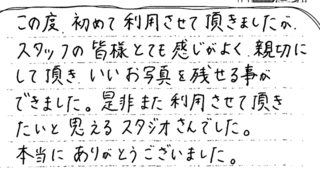 この度、初めて利用させて頂きましたが
スタッフの皆様とても感じがよく、親切に
して頂き、いいお写真を残せる事が
できました。是非また利用させて頂き
たいと思えるスタジオさんでした。
本当にありがとうございました。